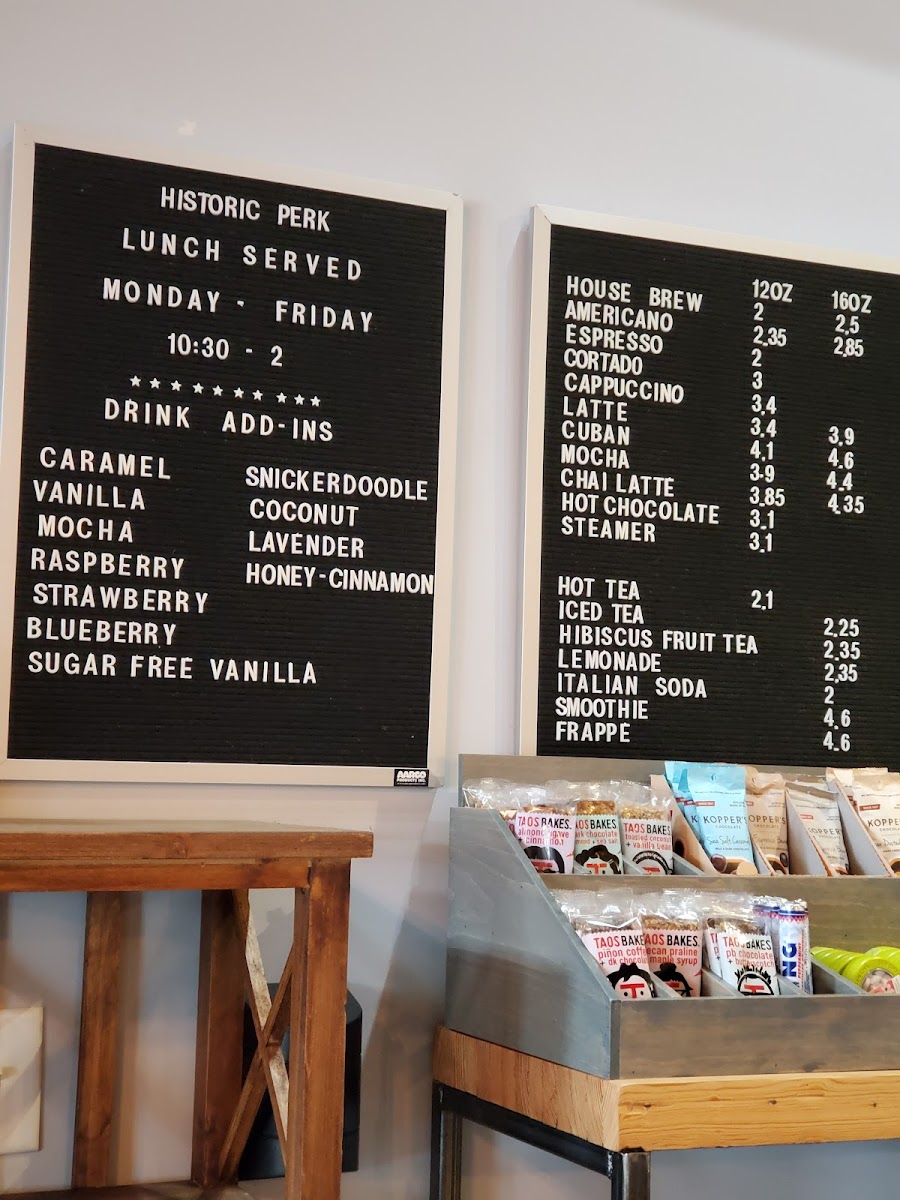 HISTORIC PERK
LUNCH SERVED
MONDAY - FRIDAY
10:30 - 2
DRINK ADD-INS
CARAMEL
VANILLA
MOCHA
RASPBERRY
STRAWBERRY
BLUEBERRY
SUGAR FREE VANILLA
SNICKERDOODLE
COCONUT
LAVENDER
HONEY-CINNAMON
AARCO
12OZ 16OZ
HOUSE BREW 2 2.5
AMERICANO 2.35 2.85
ESPRESSO 2
CORTADO 3
CAPPUCCINO 3.4
LATTE 3.4 3.9
CUBAN 4.1 4.6
MOCHA 3.9 4.4
CHAI LATTE 3.85 4.35
HOT CHOCOLATE 3.1
STEAMER 3.1
HOT TEA 2.1
ICED TEA 2.25
HIBISCUS FRUIT TEA 2.35
LEMONADE 2.35
ITALIAN SODA 2
SMOOTHIE 4.6
FRAPPE 4.6
TAOS BAKES.
almond agave
+ cinnamon
TAOS BAKES.
toasted coconut
+ vanilla bean
KOPPER'S
CHOCOLATE
Sea Salt Caramel
TAOS BAKES.
piñon coffee
+ dk chocolate
TAOS BAKES.
pecan praline
maple syrup
TAOS BAKES.
pb chocolate
+ butterscotch